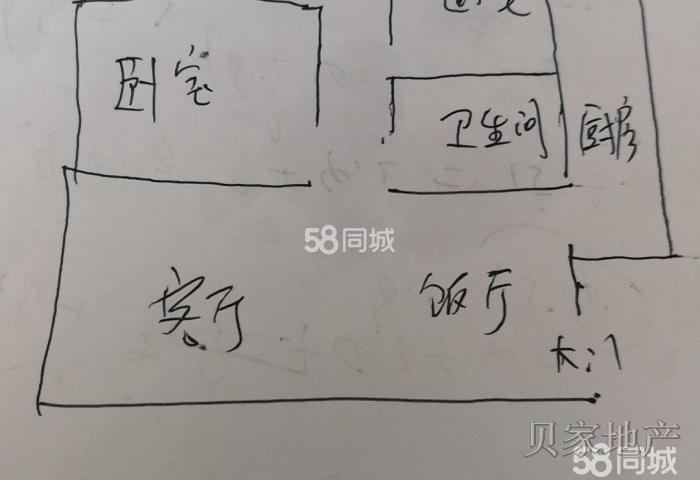 卧室
卫生间
厨房
58同城
客厅
饭厅
大门
贝家地产
58同城